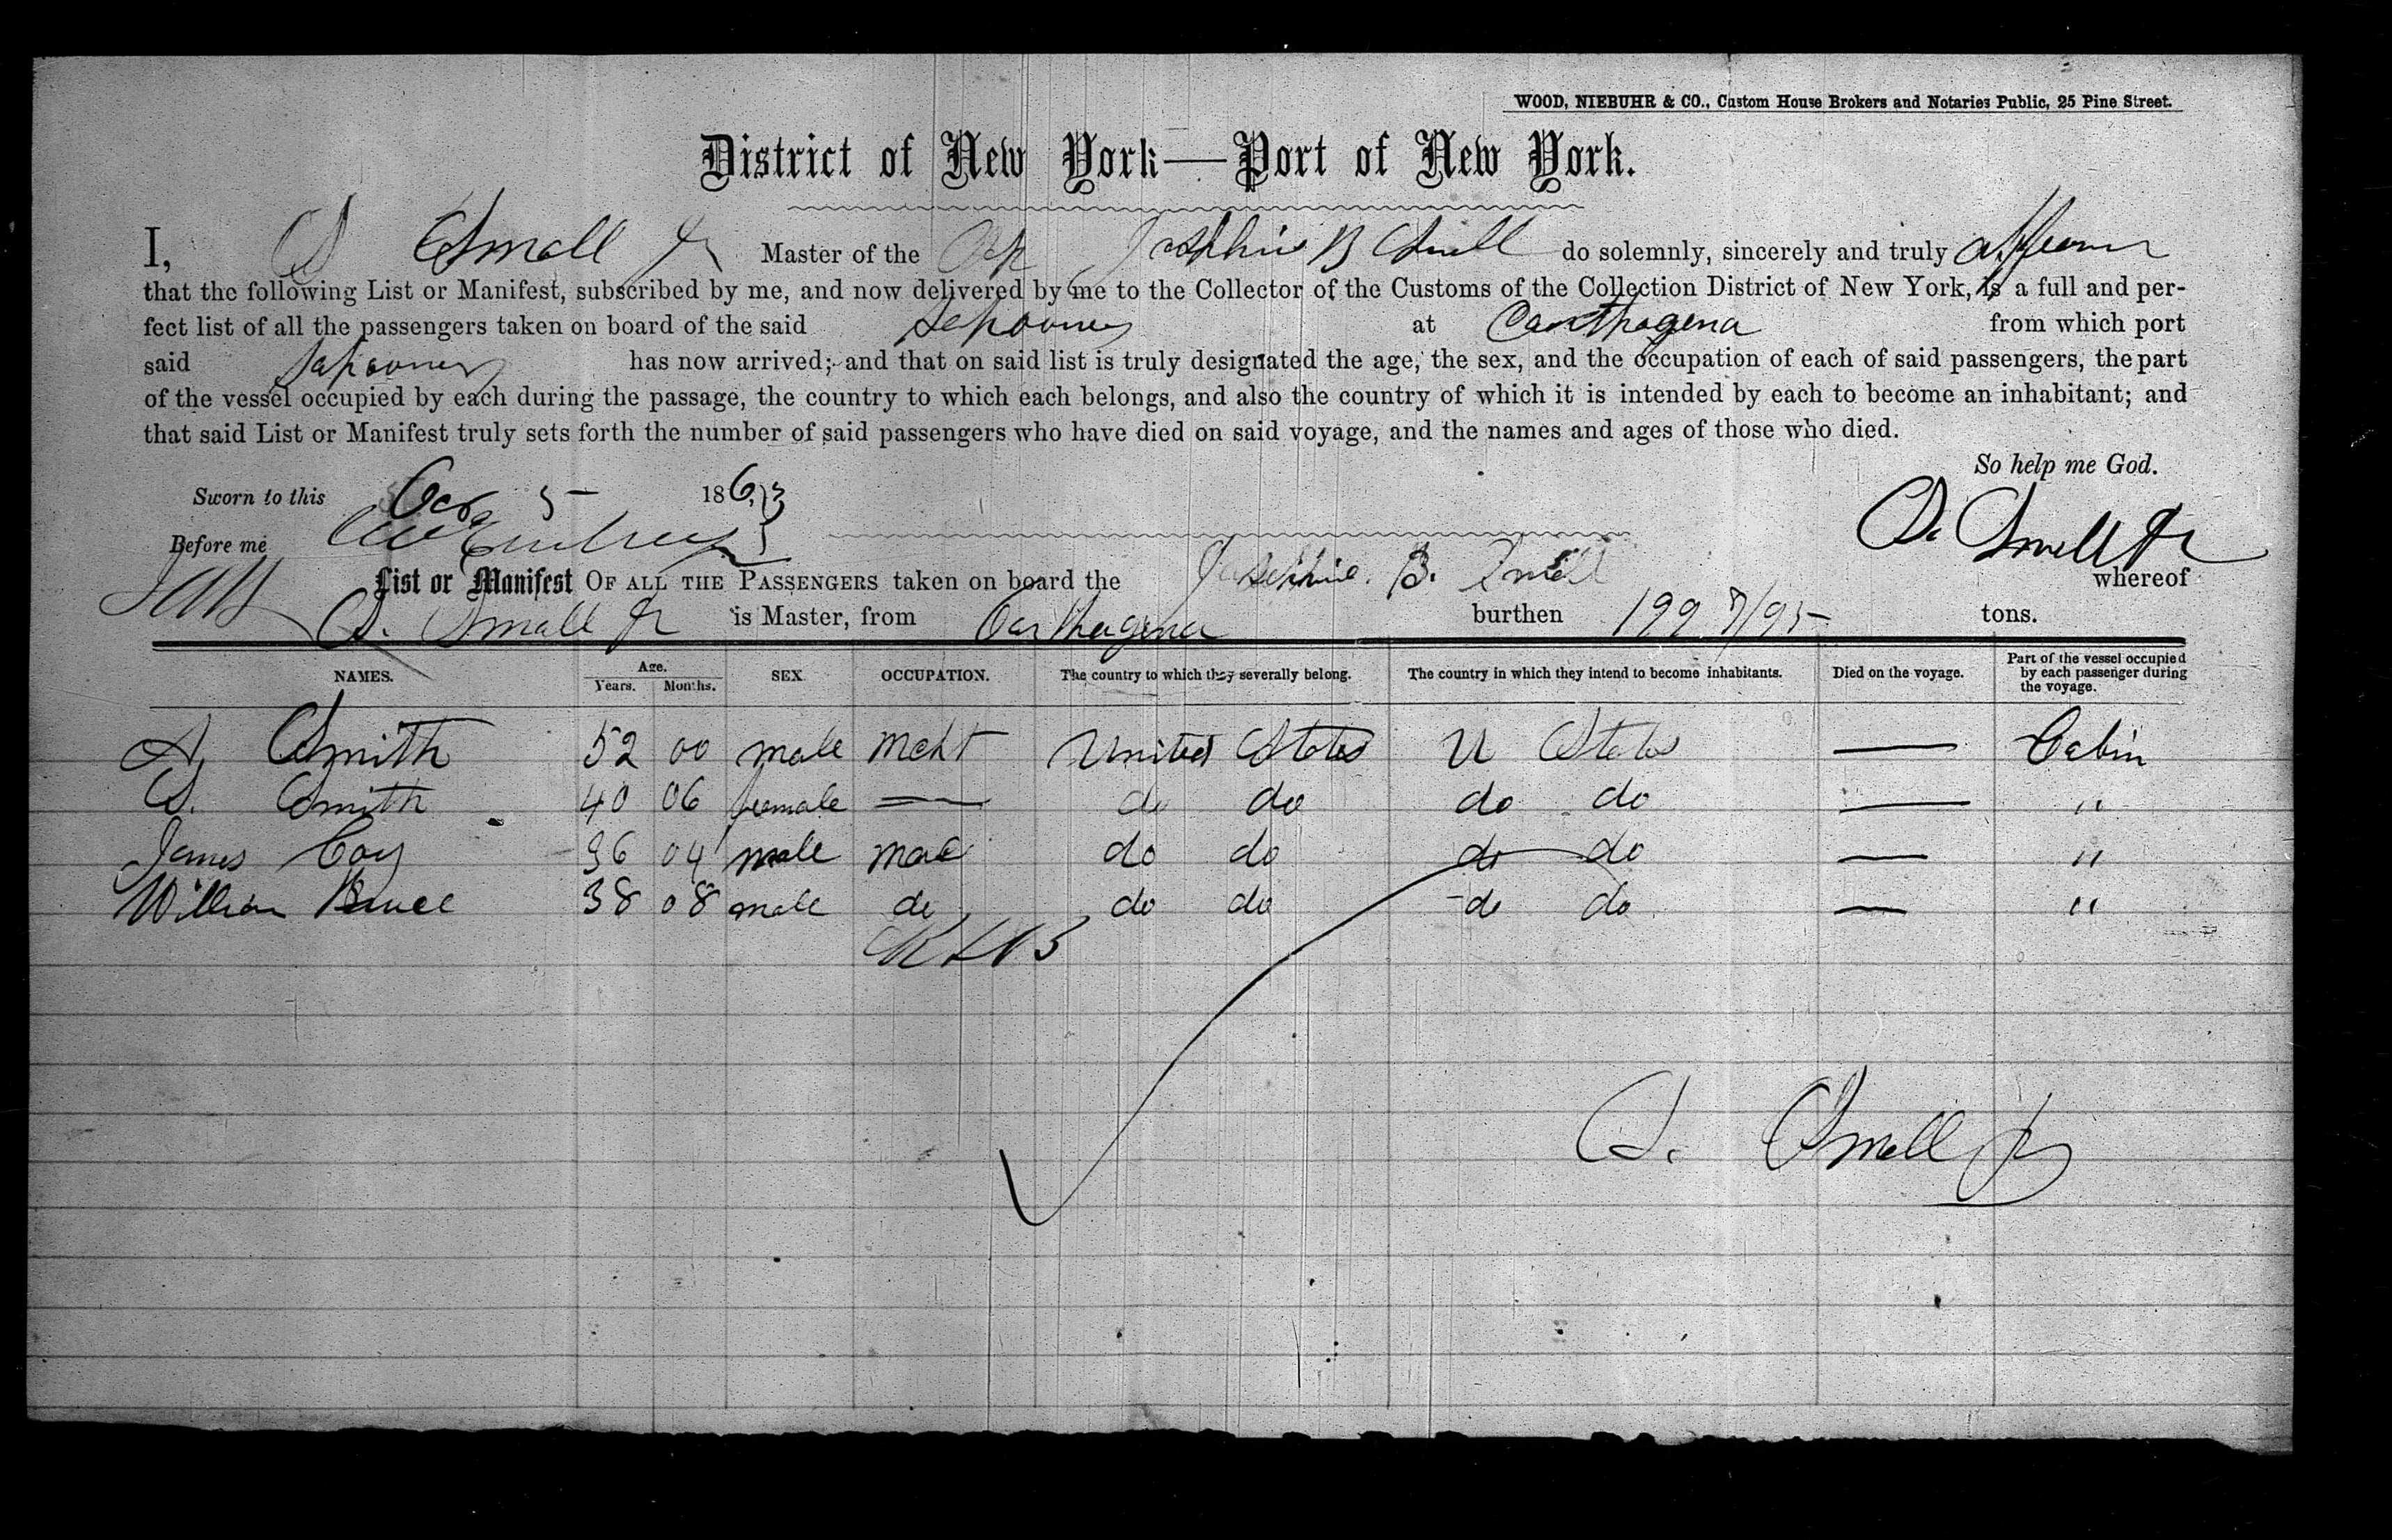 WOOD, NIEBUHR & CO., Custom House Brokers and Notaries Public, 25 Pine Street.
District of New York—Port of New York.
I, D Small Jr Master of the Josephine B Small do solemnly, sincerely and truly affirm
that the following List or Manifest, subscribed by me, and now delivered by me to the Collector of the Customs of the Collection District of New York, is a full and per-
fect list of all the passengers taken on board of the said Schooner at Carthagena from which port
said Schooner has now arrived; and that on said list is truly designated the age, the sex, and the occupation of each of said passengers, the part
of the vessel occupied by each during the passage, the country to which each belongs, and also the country of which it is intended by each to become an inhabitant; and
that said List or Manifest truly sets forth the number of said passengers who have died on said voyage, and the names and ages of those who died.
So help me God.
Sworn to this 5 1863
D. Small Jr
Before me
List or Manifest OF ALL THE PASSENGERS taken on board the Josephine B. Small whereof
D. Small Jr is Master, from Carthagena burthen 199 7/95 tons.
NAMES. Age. Years. Months. SEX OCCUPATION. The country to which they severally belong. The country in which they intend to become inhabitants. Died on the voyage. Part of the vessel occupied by each passenger during the voyage.
A. Smith 52 00 male Mcht United States U States — Cabin
S. Smith 40 06 female — do do do do — "
James Coy 36 04 male do do do do — "
William Bruce 38 08 male do do do do do — "
D. Small Jr